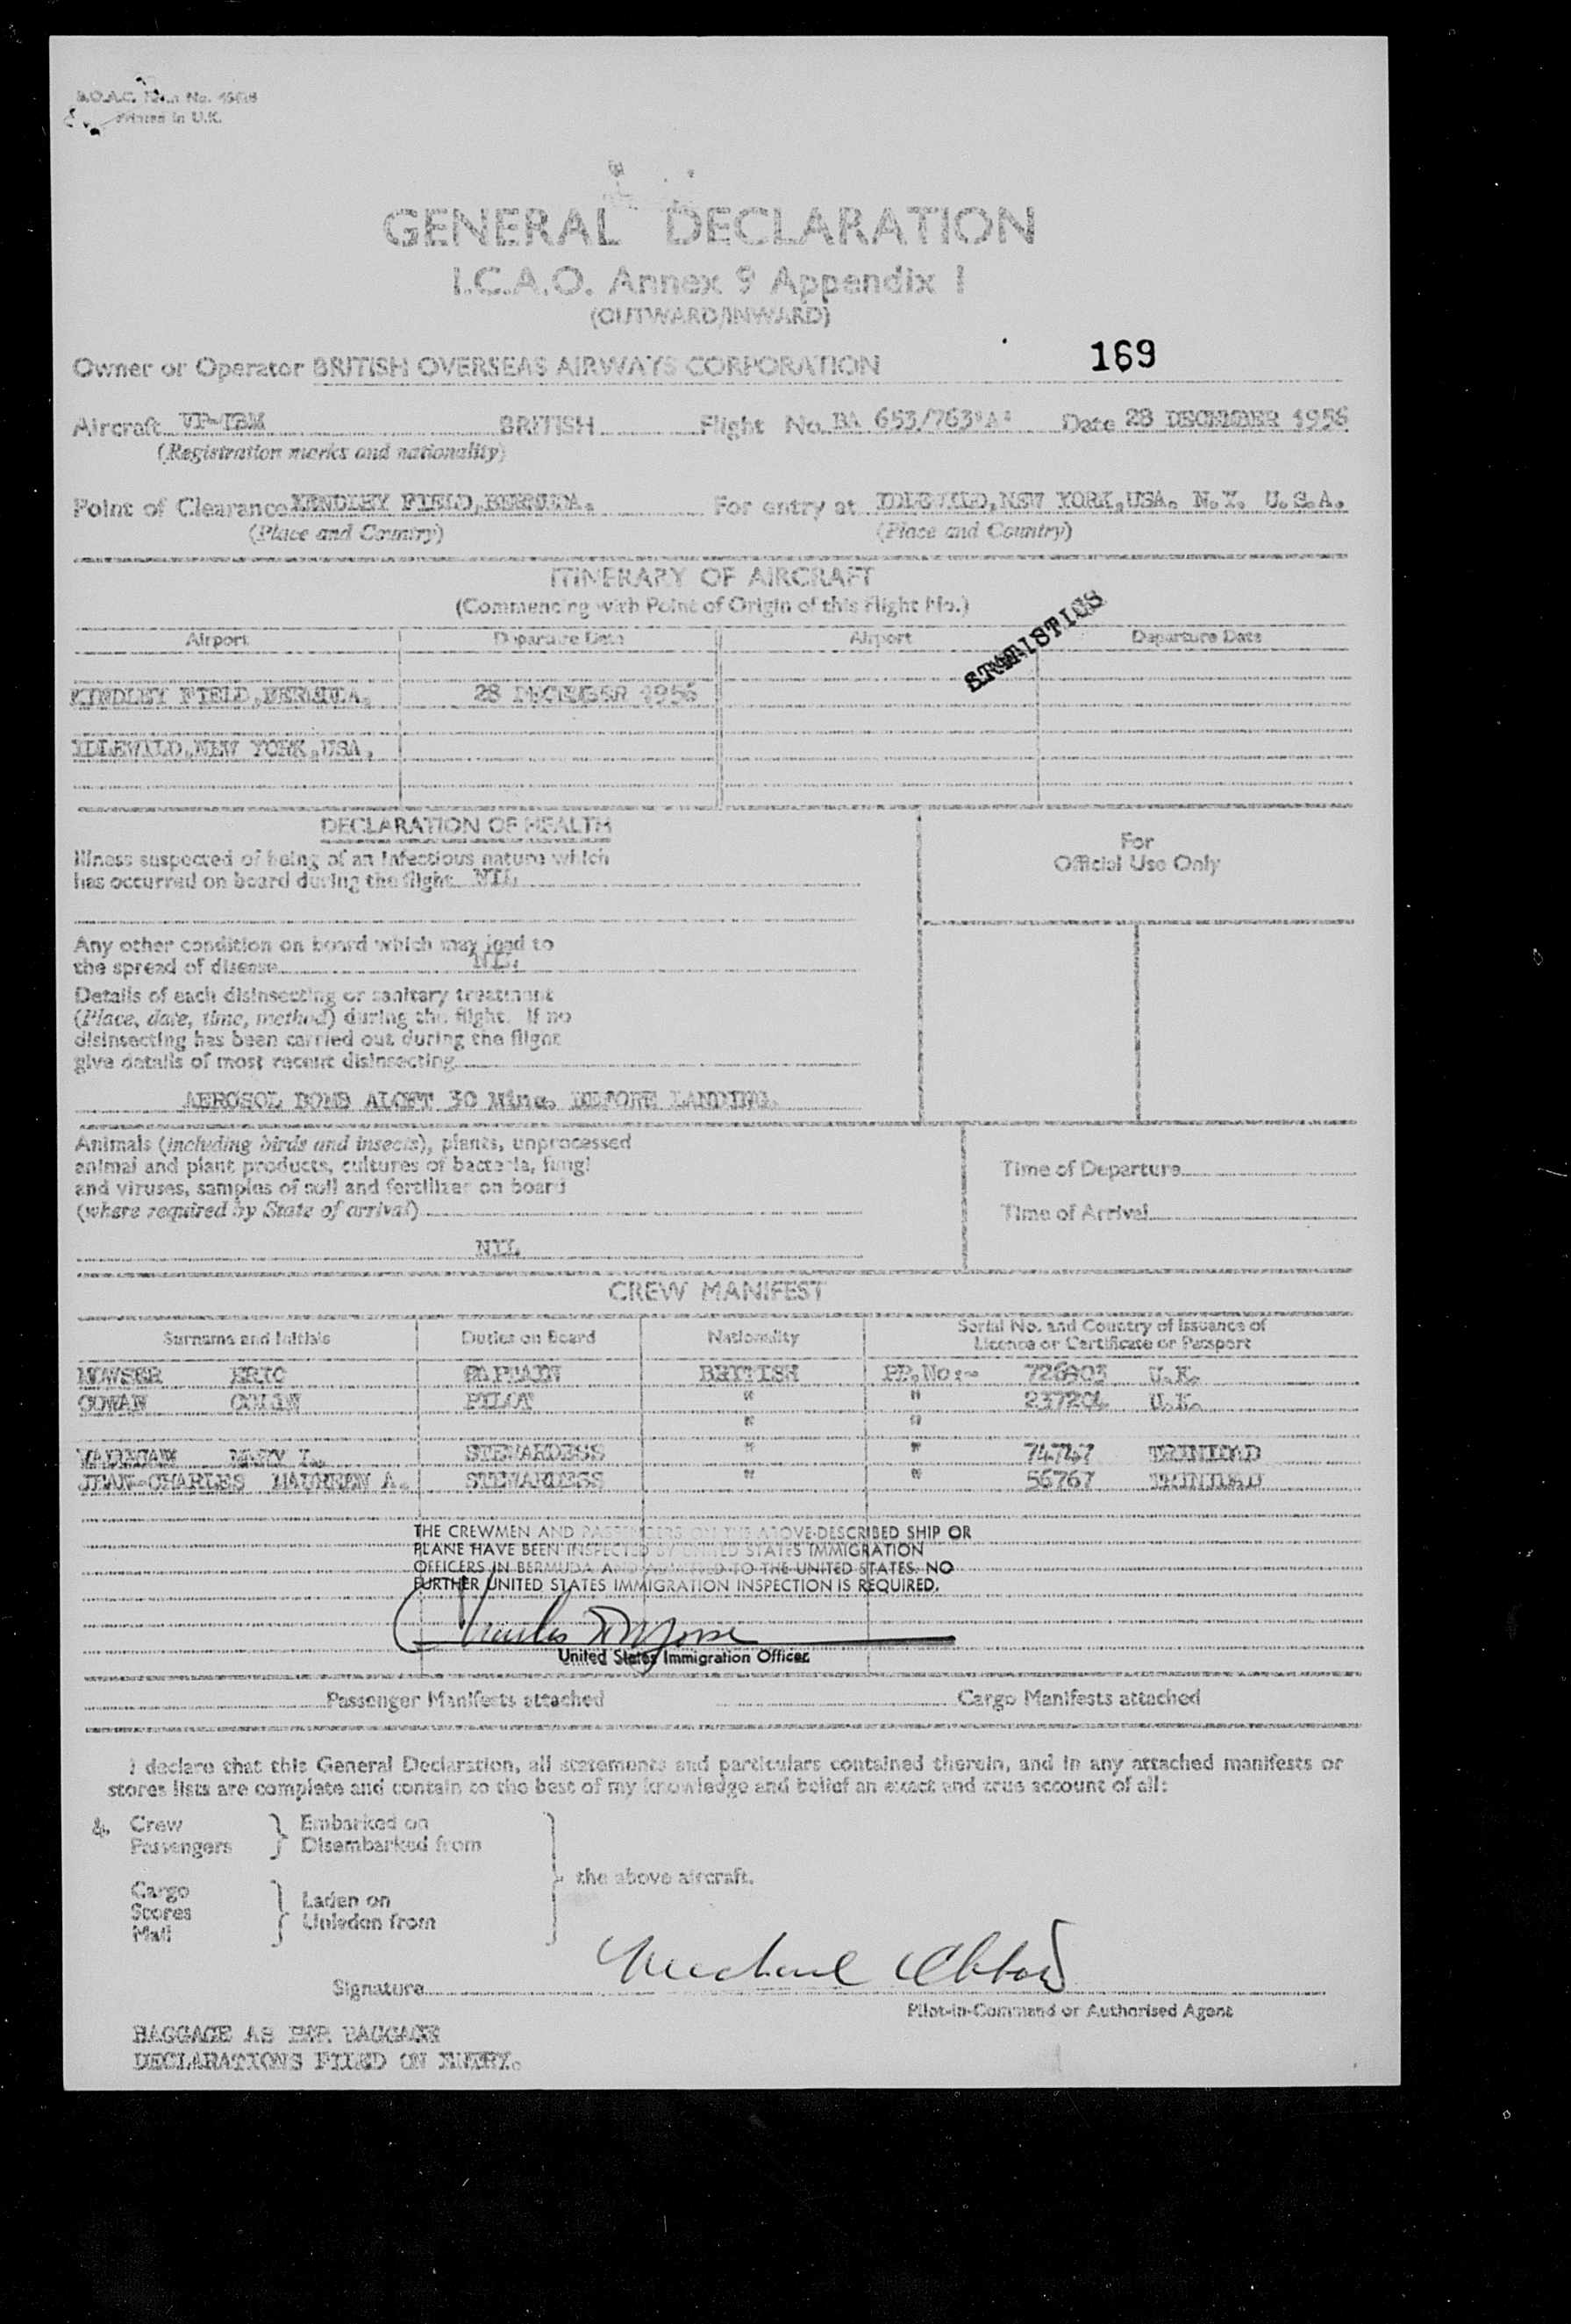 Printed in U.K.
GENERAL DECLARATION
I.C.A.O. Annex 9 Appendix 1
(OUTWARD/INWARD)
Owner or Operator BRITISH OVERSEAS AIRWAYS CORPORATION 169
Aircraft VP-TBM BRITISH Flight No. BA 653/763'A' Date 28 DECEMBER 1956
(Registration marks and nationality)
Point of Clearance KINDLEY FIELD, BERMUDA. For entry at IDLEWILD, NEW YORK, USA. N.Y. U.S.A.
(Place and Country) (Place and Country)
ITINERARY OF AIRCRAFT
(Commencing with Point of Origin of this Flight No.)
STATISTICS
Airport Departure Date Airport Departure Date
KINDLEY FIELD, BERMUDA. 28 DECEMBER 1956
IDLEWILD, NEW YORK, USA.
DECLARATION OF HEALTH
For
Official Use Only
Illness suspected of being of an infectious nature which
has occurred on board during the flight NIL
Any other condition on board which may lead to
the spread of disease NIL.
Details of each disinsecting or sanitary treatment
(Place, date, time, method) during the flight. If no
disinsecting has been carried out during the flight
give details of most recent disinsecting
AEROSOL BOMB ALOFT 30 Mins. BEFORE LANDING.
Animals (including birds and insects), plants, unprocessed
animal and plant products, cultures of bacteria, fungi
and viruses, samples of soil and fertilizer on board
(where required by State of arrival)
NIL
Time of Departure
Time of Arrival
CREW MANIFEST
Surname and Initials Duties on Board Nationality Serial No. and Country of Issuance of
Licence or Certificate or Passport
ERIC CAPTAIN BRITISH PP.No:- U.K.
COWAN COLIN PILOT " " 237204 U.K.
" "
MARY L. STEWARDESS " " 74747 TRINIDAD
JEAN-CHARLES MAUREEN A. STEWARDESS " " 56767 TRINIDAD
THE CREWMEN AND PASSENGERS ON THE ABOVE-DESCRIBED SHIP OR
PLANE HAVE BEEN INSPECTED BY UNITED STATES IMMIGRATION
OFFICERS IN BERMUDA AND ADMITTED TO THE UNITED STATES. NO
FURTHER UNITED STATES IMMIGRATION INSPECTION IS REQUIRED.
United States Immigration Officer
Passenger Manifests attached Cargo Manifests attached
I declare that this General Declaration, all statements and particulars contained therein, and in any attached manifests or
stores lists are complete and contain to the best of my knowledge and belief an exact and true account of all:
&. Crew Embarked on
Passengers Disembarked from
the above aircraft.
Cargo
Stores Laden on
Mail Unladen from
Signature
Pilot-in-Command or Authorised Agent
BAGGAGE AS PER BAGGAGE
DECLARATIONS FILED ON ENTRY.